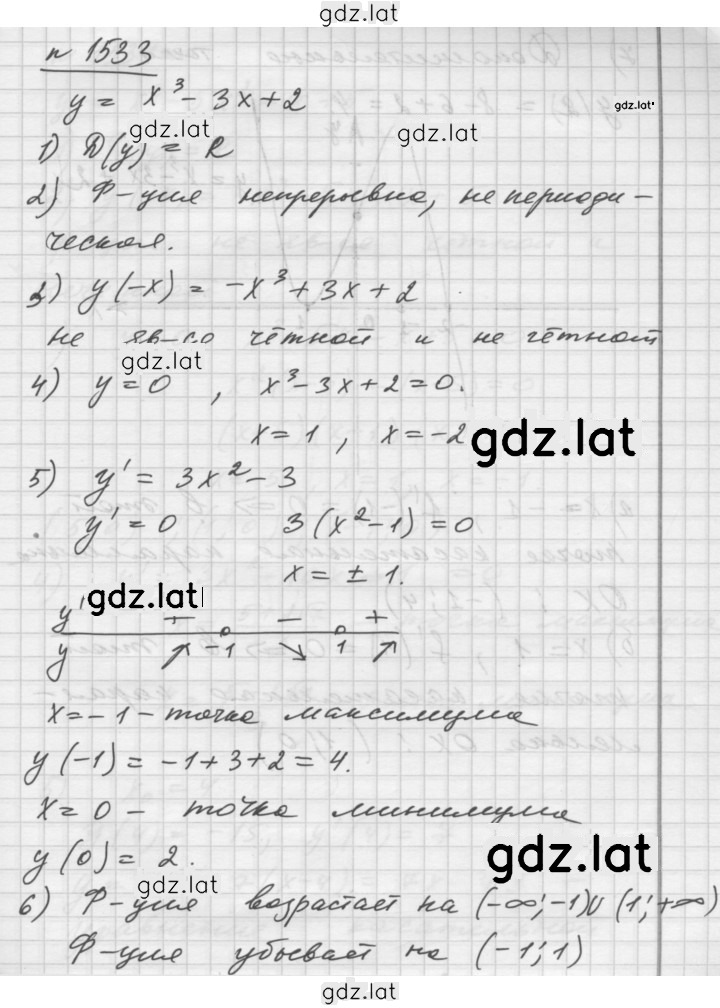 gdz.lat
n 1533
y = x³ - 3x + 2
gdz.lat
gdz.lat
gdz.lat
1) D(y) = R
2) Ф-ция непрерывна, не периоди-
ческая.
3) y(-x) = -x³ + 3x + 2
не яв-ся чётной и не чётной
gdz.lat
4) y = 0 , x³ - 3x + 2 = 0.
x = 1 , x = -2
gdz.lat
5) y' = 3x² - 3
y' = 0 3(x² - 1) = 0
x = ± 1.
gdz.lat
y' + - +
y ↗ -1 ↘ 1 ↗
x = -1 - точка максимума
y(-1) = -1 + 3 + 2 = 4.
x = 0 - точка минимума
y(0) = 2.
gdz.lat
gdz.lat
6) Ф-ция возрастает на (-∞; -1)U(1; +∞)
Ф-ция убывает на (-1; 1)
gdz.lat